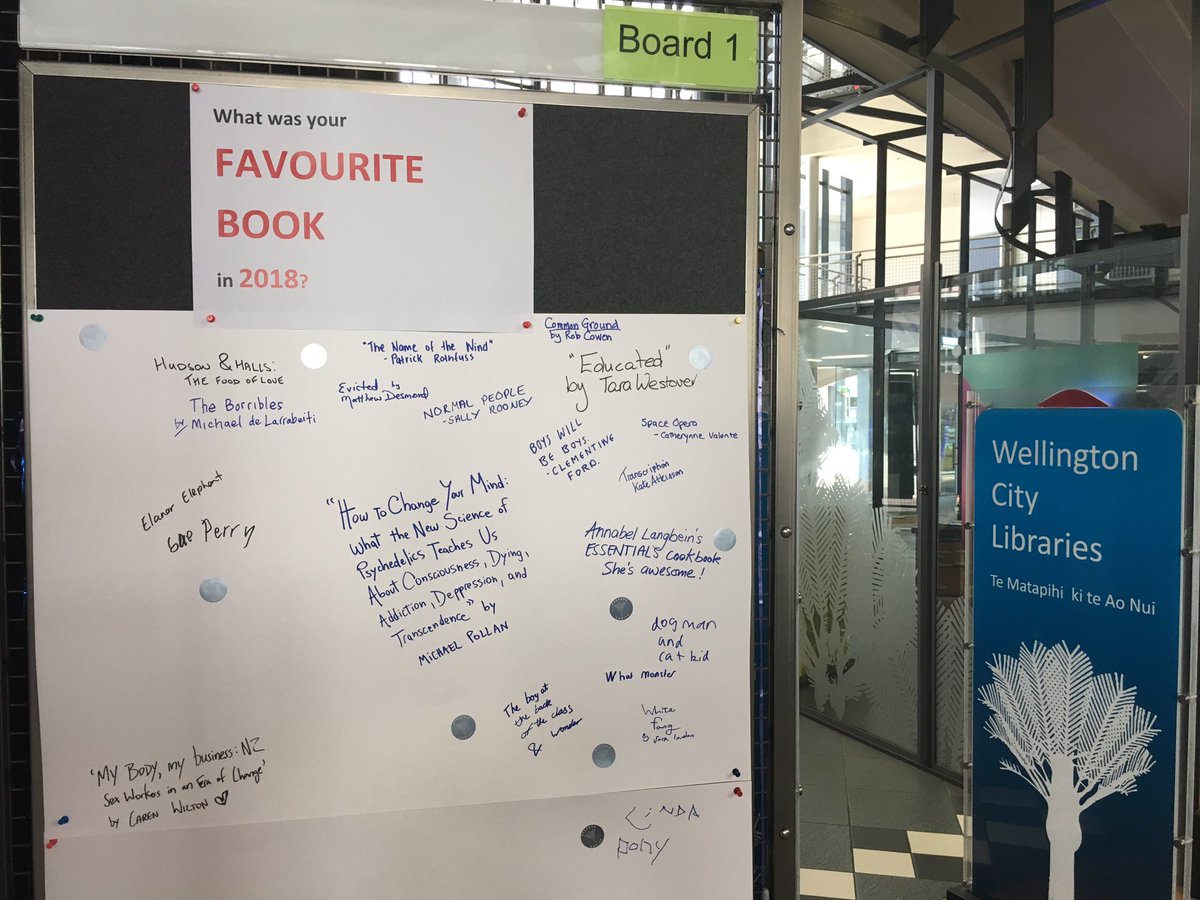 Board 1
What was your
FAVOURITE
BOOK
in 2018?
Common Ground
by Rob Cowen
"The Name of the Wind"
- Patrick Rothfuss
HUDSON & HALLS:
THE FOOD OF LOVE
"Educated"
by Tara Westover
Evicted by
Matthew Desmond
NORMAL PEOPLE
- SALLY ROONEY
The Borribles
by Michael de Larrabeiti
BOYS WILL
BE BOYS.
- CLEMENTINE
FORD.
Space Opera
- Catherynne Valente
Transcription
Kate Atkinson
Elanor Elephant
Perry
"How To Change Your Mind:
What the New Science of
Psychedelics Teaches Us
About Consciousness, Dying,
Addiction, Deppression, and
Transcendence" by
MICHAEL POLLAN
Annabel Langbein's
ESSENTIALS cookbook
She's awesome!
dog man
and
cat kid
What monster
The boy at
the back
of the class
& wonder
White
fang
Jack London
'MY BODY, my business: NZ
Sex Workers in an Era of Change'
by CAREN WILTON
pony
Wellington
City
Libraries
Te Matapihi ki te Ao Nui